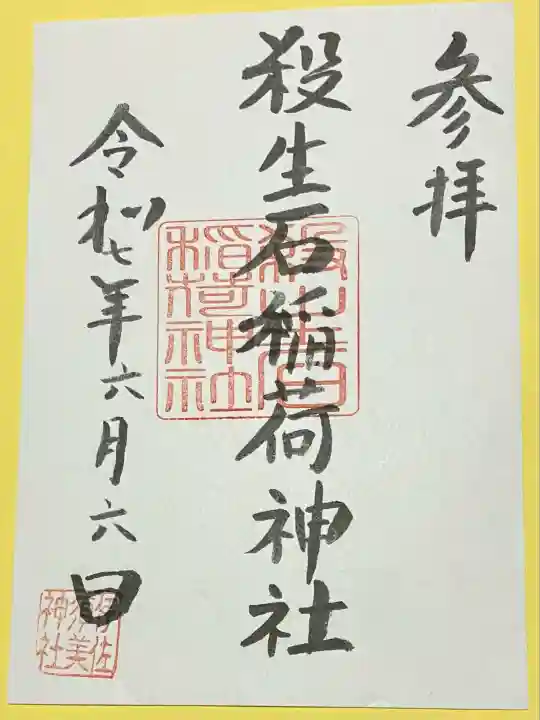 参拝
殺生石稲荷神社
殺生石
稲荷神社
令和七年六月六日
伊佐
須美
神社